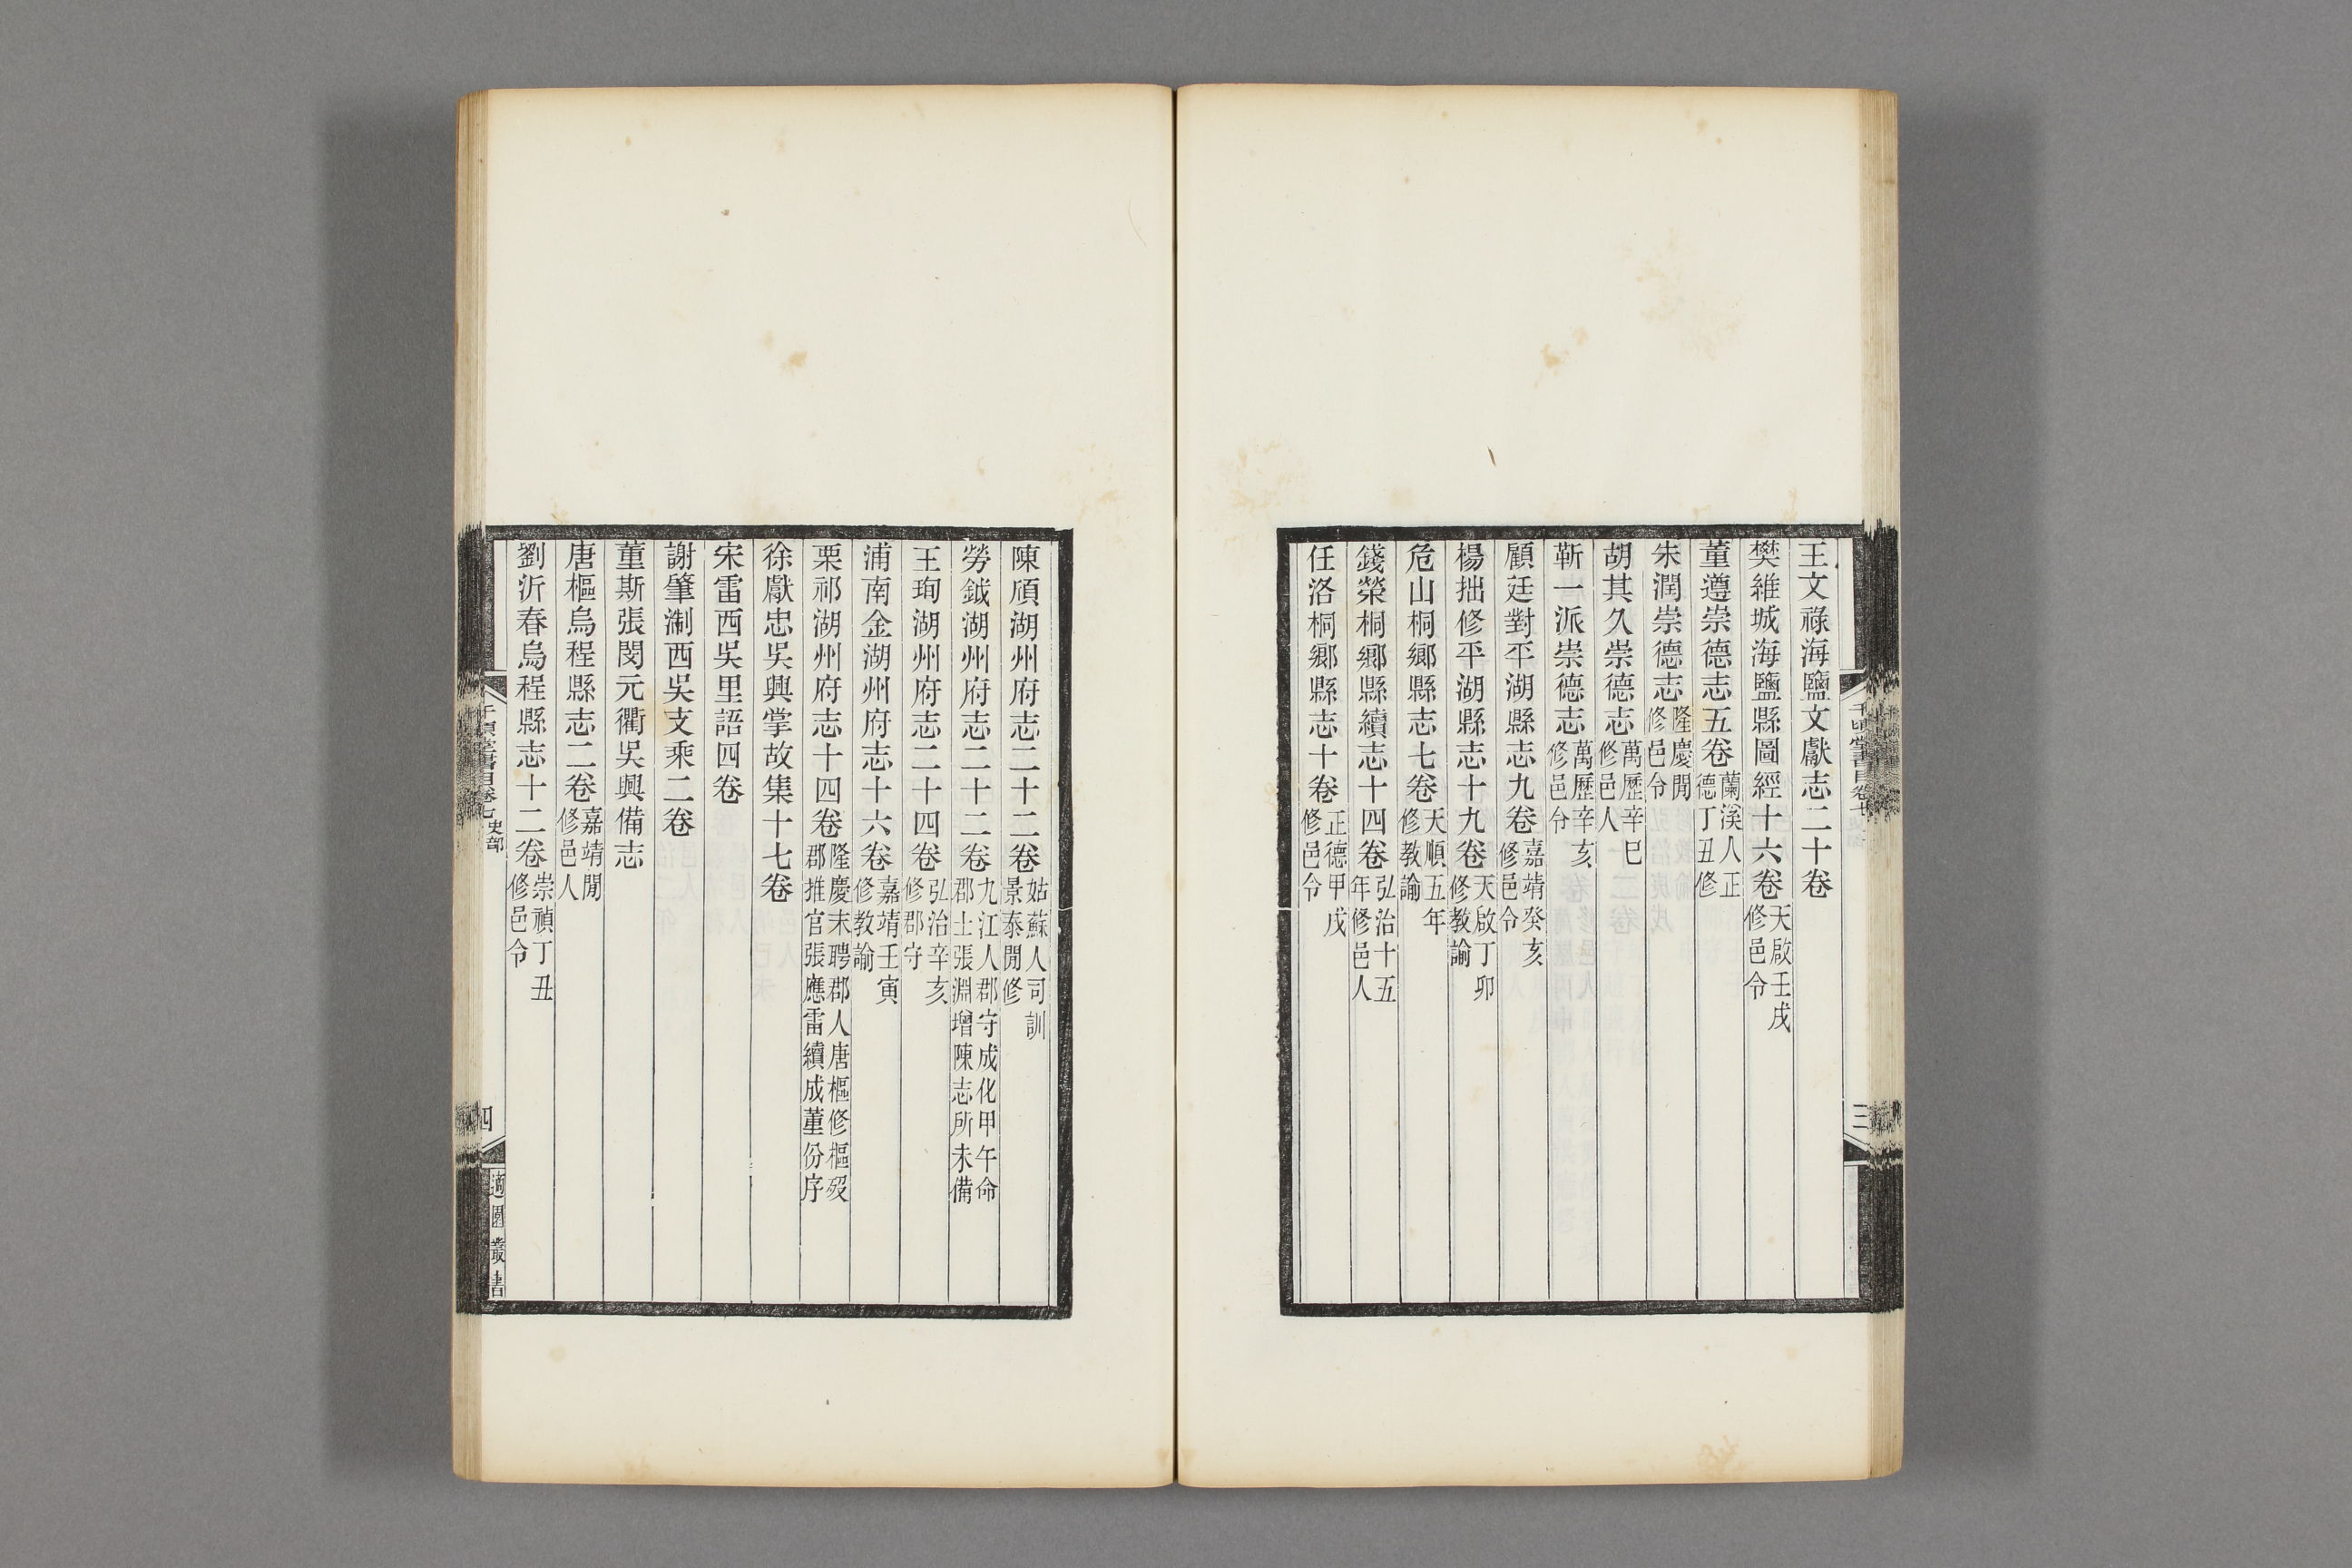 王文祿海鹽文獻志二十卷
樊維城海鹽縣圖經十六卷 天啟壬戌修邑令
董遵崇德志五卷 蘭溪人正德丁丑修
朱潤崇德志 隆慶閒修邑令
胡其久崇德志 萬歷辛巳修邑人
靳一派崇德志 萬歷辛亥修邑令
顧廷對平湖縣志九卷 嘉靖癸亥修邑令
楊拙修平湖縣志十九卷 天啟丁卯修教諭
危山桐鄉縣志七卷 天順五年修教諭
錢榮桐鄉縣續志十四卷 弘治十五年修邑人
任洛桐鄉縣志十卷 正德甲戌修邑令
千頃堂書目卷七
三
陳頎湖州府志二十二卷 姑蘇人司訓景泰閒修
勞鉞湖州府志二十二卷 九江人郡守成化甲午命郡士張淵增陳志所未備
王珣湖州府志二十四卷 弘治辛亥修郡守
浦南金湖州府志十六卷 嘉靖壬寅修教諭
栗祁湖州府志十四卷 隆慶末聘郡人唐樞修樞歿郡推官張應雷續成董份序
徐獻忠吳興掌故集十七卷
宋雷西吳里語四卷
謝肇淛西吳支乘二卷
董斯張閔元衢吳興備志
唐樞烏程縣志二卷 嘉靖閒修邑人
劉沂春烏程縣志十二卷 崇禎丁丑修邑令
千頃堂書目卷七 史部
四
適園叢書